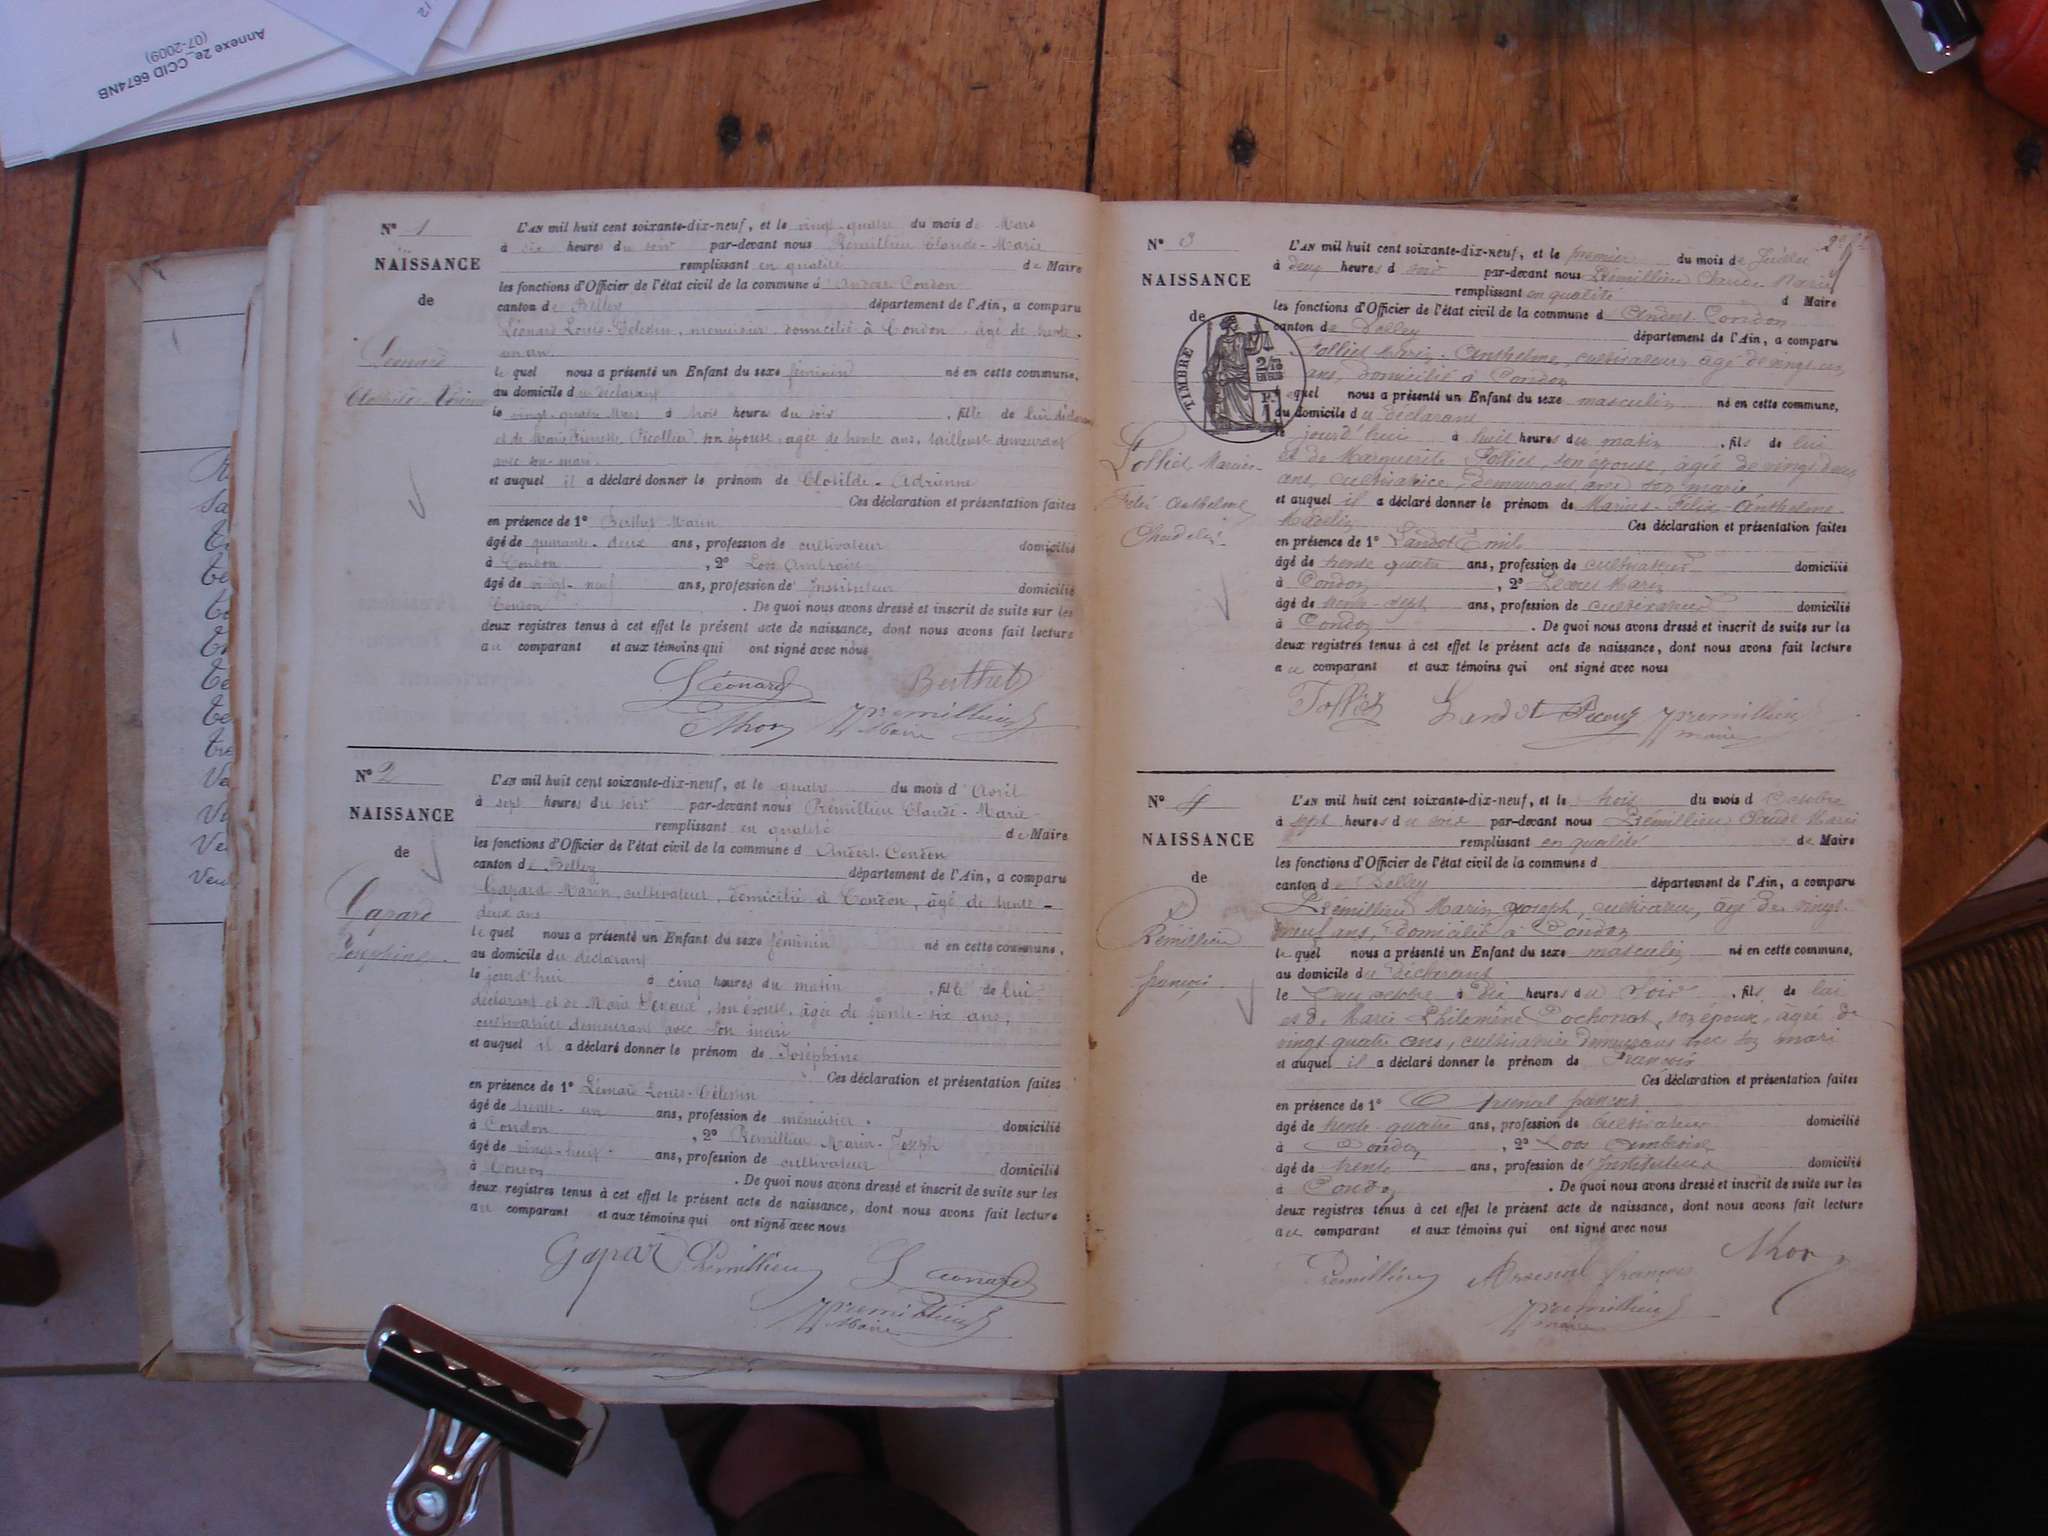 Annexe 2e_CCID 6674NB
(07-2009)
N° 1
NAISSANCE
de
Léonard
Clotilde
L'AN mil huit cent soixante-dix-neuf, et le vingt-quatre du mois de Mars
à six heures du soir par-devant nous Prémillieu Claude-Marie
remplissant en qualité de Maire
les fonctions d'Officier de l'état civil de la commune d'Andert-Condon
canton de Belley département de l'Ain, a comparu
Léonard Louis-Célestin, menuisier, domicilié à Condon, âgé de trente-
un ans
le quel nous a présenté un Enfant du sexe féminin né en cette commune,
au domicile du déclarant
le vingt-quatre Mars à trois heures du soir, fille de lui déclarant
et de Marie Pierrette son épouse, âgée de trente ans, tailleuse demeurant
avec son mari.
et auquel il a déclaré donner le prénom de Clotilde-Adrienne
Ces déclaration et présentation faites
en présence de 1° Berthet Marin
âgé de quarante-deux ans, profession de cultivateur domicilié
à Condon, 2° Ambroise
âgé de vingt-neuf ans, profession de Instituteur domicilié
Condon. De quoi nous avons dressé et inscrit de suite sur les
deux registres tenus à cet effet le présent acte de naissance, dont nous avons fait lecture
au comparant et aux témoins qui ont signé avec nous
Léonard Berthet
Prémillieu
Maire
N° 2
NAISSANCE
de
Gapard
Joséphine
L'AN mil huit cent soixante-dix-neuf, et le quatre du mois d'Avril
à sept heures du soir par-devant nous Prémillieu Claude-Marie
remplissant en qualité de Maire
les fonctions d'Officier de l'état civil de la commune d'Andert-Condon
canton de Belley département de l'Ain, a comparu
Gapard Marin, cultivateur, domicilié à Condon, âgé de trente-
deux ans
le quel nous a présenté un Enfant du sexe féminin né en cette commune,
au domicile du déclarant
le jourd'hui à cinq heures du matin, fille de lui
déclarant et de son épouse, âgée de trente-six ans,
cultivatrice demeurant avec son mari
et auquel il a déclaré donner le prénom de Joséphine
Ces déclaration et présentation faites
en présence de 1° Léonard Louis-Célestin
âgé de trente-un ans, profession de menuisier domicilié
à Condon, 2° Prémillieu Marin-Joseph
âgé de vingt-neuf ans, profession de cultivateur domicilié
à Condon. De quoi nous avons dressé et inscrit de suite sur les
deux registres tenus à cet effet le présent acte de naissance, dont nous avons fait lecture
au comparant et aux témoins qui ont signé avec nous
Gapar Prémillieu Léonard
Prémillieu
Maire
N° 3
NAISSANCE
de
TIMBRE
Folliet Marius-
Félix Anthelme
L'AN mil huit cent soixante-dix-neuf, et le premier du mois de
à deux heures d soir par-devant nous Prémillieu Claude Marie
remplissant en qualité d Maire
les fonctions d'Officier de l'état civil de la commune d'Andert-Condon
canton de Belley département de l'Ain, a comparu
Folliet Marin-Anthelme, cultivateur, âgé de vingt
ans, domicilié à Condon
lequel nous a présenté un Enfant du sexe masculin né en cette commune,
au domicile du déclarant
le jourd'hui à huit heures du matin, fils de lui
et de Marguerite Folliet, son épouse, âgée de vingt deux
ans, cultivatrice, demeurant avec son marie
et auquel il a déclaré donner le prénom de Marius-Félix-Anthelme-
Ces déclaration et présentation faites
en présence de 1° Landot Emile
âgé de trente quatre ans, profession de cultivateur domicilié
à Condon, 2° Marin
âgé de trente-sept ans, profession de cultivateur domicilié
à Condon. De quoi nous avons dressé et inscrit de suite sur les
deux registres tenus à cet effet le présent acte de naissance, dont nous avons fait lecture
au comparant et aux témoins qui ont signé avec nous
Folliet Landot Prémillieu
maire
N° 4
NAISSANCE
de
Prémillieu
françois
L'AN mil huit cent soixante-dix-neuf, et le trois du mois d Octobre
à sept heures du soir par-devant nous Prémillieu Claude Marie
remplissant en qualité de Maire
les fonctions d'Officier de l'état civil de la commune d
canton de Belley département de l'Ain, a comparu
Prémillieu Marin Joseph, cultivateur, âgé de vingt-
neuf ans, domicilié à Condon
le quel nous a présenté un Enfant du sexe masculin né en cette commune,
au domicile du déclarant
le octobre à dix heures du soir, fils de lui
et de Marie Philomène Cochonat, son épouse, âgée de
vingt quatre ans, cultivatrice demeurant avec son mari
et auquel il a déclaré donner le prénom de François
Ces déclaration et présentation faites
en présence de 1° Arsenal françois
âgé de trente-quatre ans, profession de cultivateur domicilié
à Condon, 2° Ambroise
âgé de trente ans, profession de Instituteur domicilié
à Condon. De quoi nous avons dressé et inscrit de suite sur les
deux registres tenus à cet effet le présent acte de naissance, dont nous avons fait lecture
au comparant et aux témoins qui ont signé avec nous
Prémillieu Arsenal françois
Prémillieu
maire